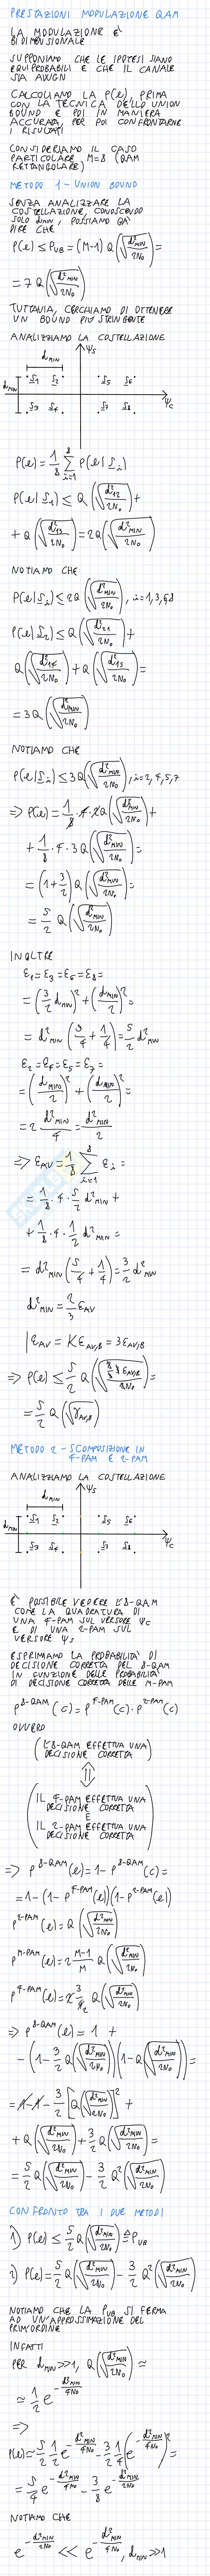 PRESTAZIONI MODULAZIONE QAM
LA MODULAZIONE È
BIDIMENSIONALE
SUPPONIAMO CHE LE IPOTESI SIANO
EQUIPROBABILI E CHE IL CANALE
SIA AWGN
CALCOLIAMO LA P(e), PRIMA
CON LA TECNICA DELLO UNION
BOUND E POI IN MANIERA
ACCURATA, PER POI CONFRONTARNE
I RISULTATI
CONSIDERIAMO IL CASO
PARTICOLARE M=8 (QAM
RETTANGOLARE)
METODO 1 - UNION BOUND
SENZA ANALIZZARE LA
COSTELLAZIONE, CONOSCENDO
SOLO dMIN, POSSIAMO GIÀ
DIRE CHE
P(e) ≤ PUB = (M-1) Q(√(d²MIN/2N₀)) =
= 7 Q(√(d²MIN/2N₀))
TUTTAVIA, CERCHIAMO DI OTTENERE
UN BOUND PIÙ STRINGENTE
ANALIZZIAMO LA COSTELLAZIONE
dMIN ψS
dMIN S1 S2 S5 S6
ψC
S3 S4 S7 S8
P(e) = 1/8 Σ(i=1..8) P(e|Si)
P(e|S1) ≤ Q(√(d²12/2N₀)) +
+ Q(√(d²13/2N₀)) = 2Q(√(d²MIN/2N₀))
NOTIAMO CHE
P(e|Si) ≤ 2Q(√(d²MIN/2N₀)), i=1,3,6,8
P(e|S2) ≤ Q(√(d²21/2N₀)) +
Q(√(d²24/2N₀)) + Q(√(d²25/2N₀)) =
= 3Q(√(d²MIN/2N₀))
NOTIAMO CHE
P(e|Si) ≤ 3Q(√(d²MIN/2N₀)), i=2,4,5,7
=> P(e) = 1/8 · 4 · 2Q(√(d²MIN/2N₀)) +
+ 1/8 · 4 · 3Q(√(d²MIN/2N₀)) =
= (1+3/2) Q(√(d²MIN/2N₀)) =
= 5/2 Q(√(d²MIN/2N₀))
INOLTRE
ε1=ε3=ε6=ε8=
= (3/2 dMIN)² + (dMIN/2)² =
= d²MIN (9/4 + 1/4) = 5/2 d²MIN
ε2=ε4=ε5=ε7=
= (dMIN/2)² + (dMIN/2)² =
= 2 d²MIN/4 = d²MIN/2
=> εAV = 1/8 Σ(i=1..8) εi =
= 1/8 · 4 · 5/2 d²MIN +
+ 1/8 · 4 · 1/2 d²MIN =
= d²MIN (5/4 + 1/4) = 3/2 d²MIN
d²MIN = 2/3 εAV
εAV = KεAV,B = 3εAV,B
=> P(e) ≤ 5/2 Q(√(2/3 · 3 εAV,B/2N₀)) =
= 5/2 Q(√(γAV,B))
METODO 2 - SCOMPOSIZIONE IN
4-PAM E 2-PAM
ANALIZZIAMO LA COSTELLAZIONE
dMIN ψS
dMIN S1 S2 S5 S6
ψC
S3 S4 S7 S8
È POSSIBILE VEDERE L'8-QAM
COME LA QUADRATURA DI
UNA 4-PAM SUL VERSORE ψC
E DI UNA 2-PAM SUL
VERSORE ψS
ESPRIMIAMO LA PROBABILITÀ DI
DECISIONE CORRETTA PER 8-QAM
IN FUNZIONE DELLE PROBABILITÀ
DI DECISIONE CORRETTA DELLE M-PAM
P^8-QAM(c) = P^4-PAM(c) · P^2-PAM(c)
OVVERO
(L'8-QAM EFFETTUA UNA
DECISIONE CORRETTA)
⇕
(IL 4-PAM EFFETTUA UNA
DECISIONE CORRETTA
E
IL 2-PAM EFFETTUA UNA
DECISIONE CORRETTA)
=> P^8-QAM(e) = 1 - P^8-QAM(c) =
= 1 - (1 - P^4-PAM(e))(1 - P^2-PAM(e))
P^2-PAM(e) = Q(√(d²MIN/2N₀))
P^M-PAM(e) = 2 M-1/M Q(√(d²MIN/2N₀))
P^4-PAM(e) = 2 3/4 Q(√(d²MIN/2N₀))
=> P^8-QAM(e) = 1 +
- (1 - 3/2 Q(√(d²MIN/2N₀)))(1 - Q(√(d²MIN/2N₀))) =
= 1 - 1 - 3/2 [Q(√(d²MIN/2N₀))]² +
+ Q(√(d²MIN/2N₀)) + 3/2 Q(√(d²MIN/2N₀)) =
= 5/2 Q(√(d²MIN/2N₀)) - 3/2 Q²(√(d²MIN/2N₀))
CONFRONTO TRA I DUE METODI
1) P(e) ≤ 5/2 Q(√(d²MIN/2N₀)) ≜ PUB
2) P(e) = 5/2 Q(√(d²MIN/2N₀)) - 3/2 Q²(√(d²MIN/2N₀))
NOTIAMO CHE LA PUB SI FERMA
AD UN'APPROSSIMAZIONE DEL
PRIM'ORDINE
INFATTI
PER dMIN>>1, Q(√(d²MIN/2N₀)) ≃
≃ 1/2 e^(-d²MIN/4N₀)
=>
P(e) ≃ 5/2 1/2 e^(-d²MIN/4N₀) - 3/2 1/4 (e^(-d²MIN/4N₀))² =
= 5/4 e^(-d²MIN/4N₀) - 3/8 e^(-d²MIN/2N₀)
NOTIAMO CHE
e^(-d²MIN/2N₀) << e^(-d²MIN/4N₀), dMIN>>1